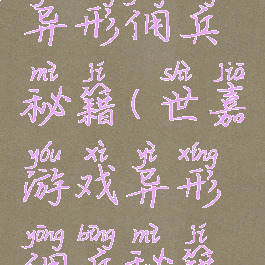 异形佣兵
mì jí shì jiā
秘籍(世嘉
yóu xì yì xíng
游戏异形
yōng bīng mì jí
佣兵秘籍